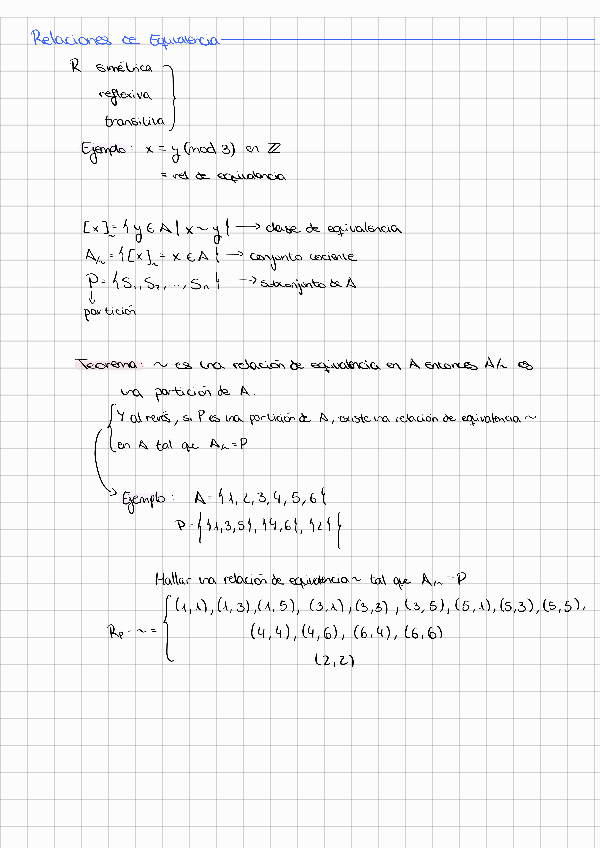 Relaciones de Equivalencia
R simétrica
reflexiva
transitiva
Ejemplo: x = y (mod 3) en ℤ
= rel de equivalencia
[x]~ = { y ∈ A | x ~ y } → clase de equivalencia
A/~ = { [x]~ = x ∈ A } → conjunto cociente
P = { S1, S2, ..., Sn } → subconjunto de A
↓
partición
Teorema: ~ es una relación de equivalencia en A entonces A/~ es
una partición de A.
Y al revés, si P es una partición de A, existe una relación de equivalencia ~
en A tal que A/~ = P
Ejemplo: A = {1, 2, 3, 4, 5, 6}
P = { {1,3,5}, {4,6}, {2} }
Hallar una relación de equivalencia ~ tal que A/~ = P
Rp = ~ = { (1,1), (1,3), (1,5), (3,1), (3,3), (3,5), (5,1), (5,3), (5,5),
(4,4), (4,6), (6,4), (6,6)
(2,2)